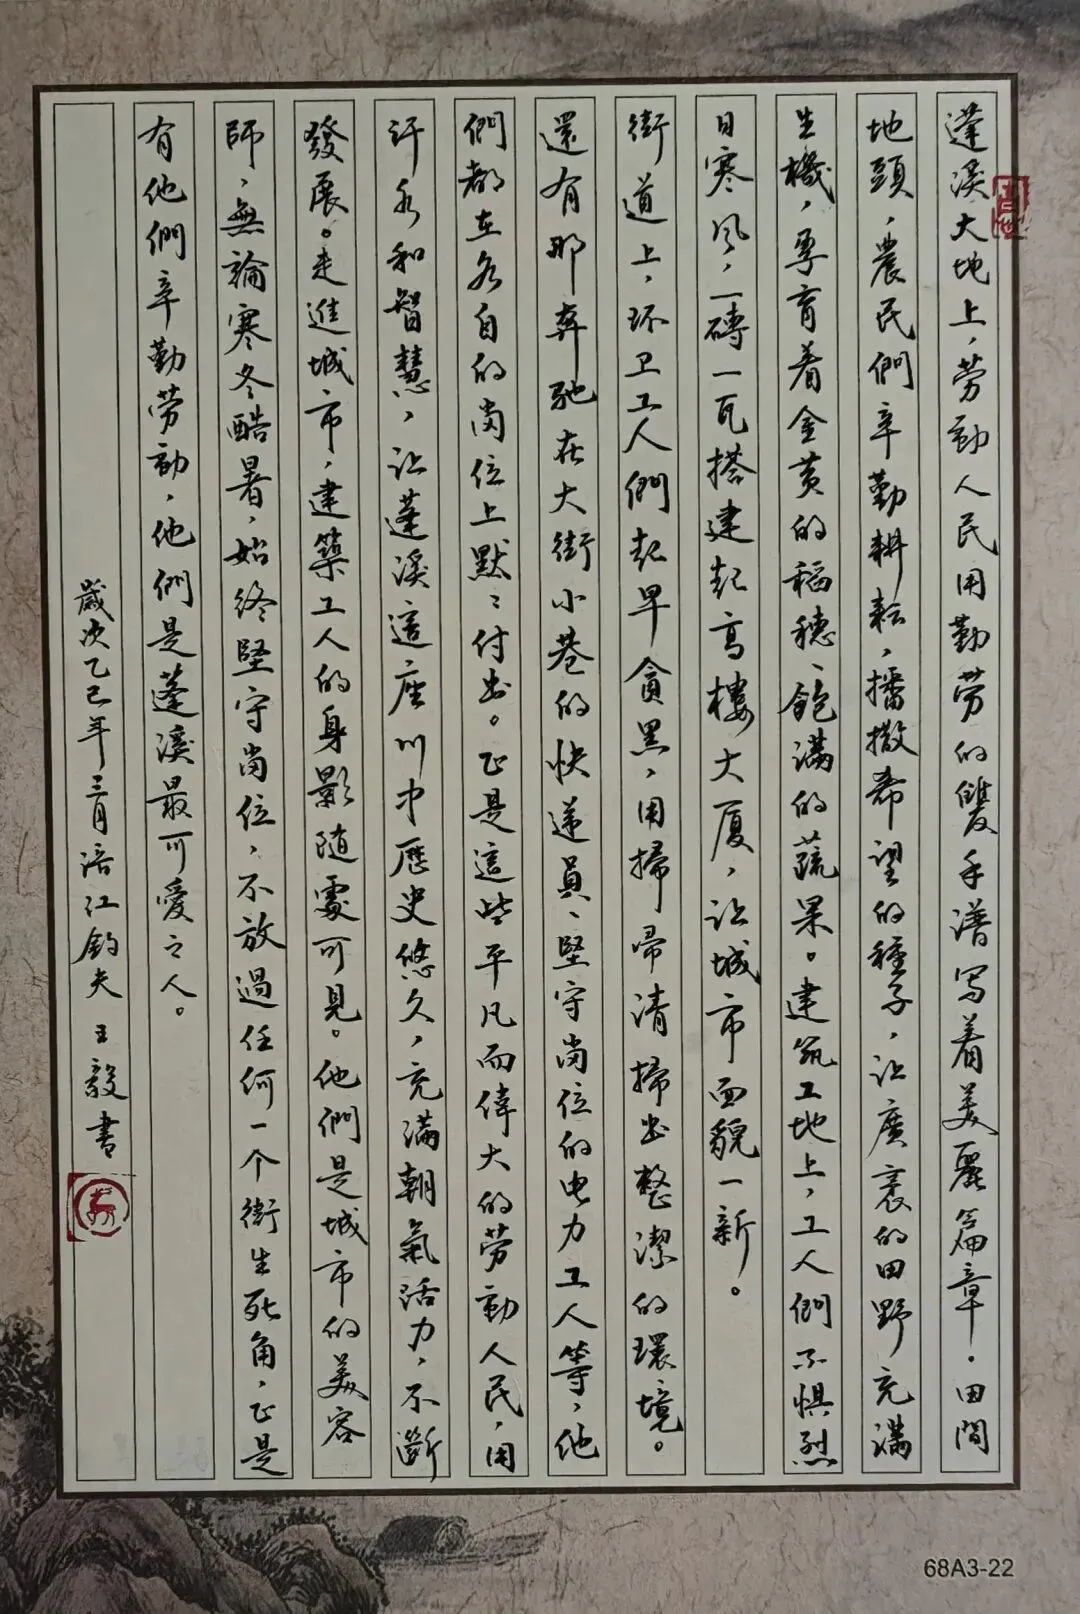 蓬溪大地上，劳動人民用勤劳的雙手譜写着美麗篇章。田間
地頭，農民們辛勤耕耘，播撒希望的種子，让廣袤的田野充满
生機，孕育着金黄的稻穗、飽满的蔬果。建筑工地上，工人們不惧烈
日寒风，一磚一瓦搭建起高樓大厦，让城市面貌一新。
街道上，环卫工人們起早貪黑，用掃帚清掃出整潔的環境。
還有那奔驰在大街小巷的快递員、堅守岗位的电力工人等，他
們都在各自的岗位上默〻付出。正是這些平凡而偉大的劳動人民，用
汗水和智慧，让蓬溪這座川中歷史悠久，充满朝氣活力，不斷
發展。走進城市，建築工人的身影随處可見。他們是城市的美容
師，無論寒冬酷暑，始终堅守岗位，不放過任何一个衛生死角，正是
有他們辛勤劳動，他們是蓬溪最可愛之人。
歲次乙巳年三月涪江钓夫王毅書
68A3-22